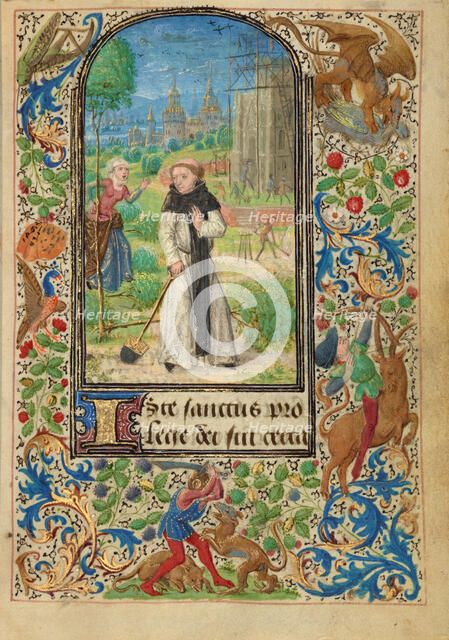 Heritage Heritage
Heritage Heritage
Heritage Heritage
Iste sanctus pro
lege dei sui certa